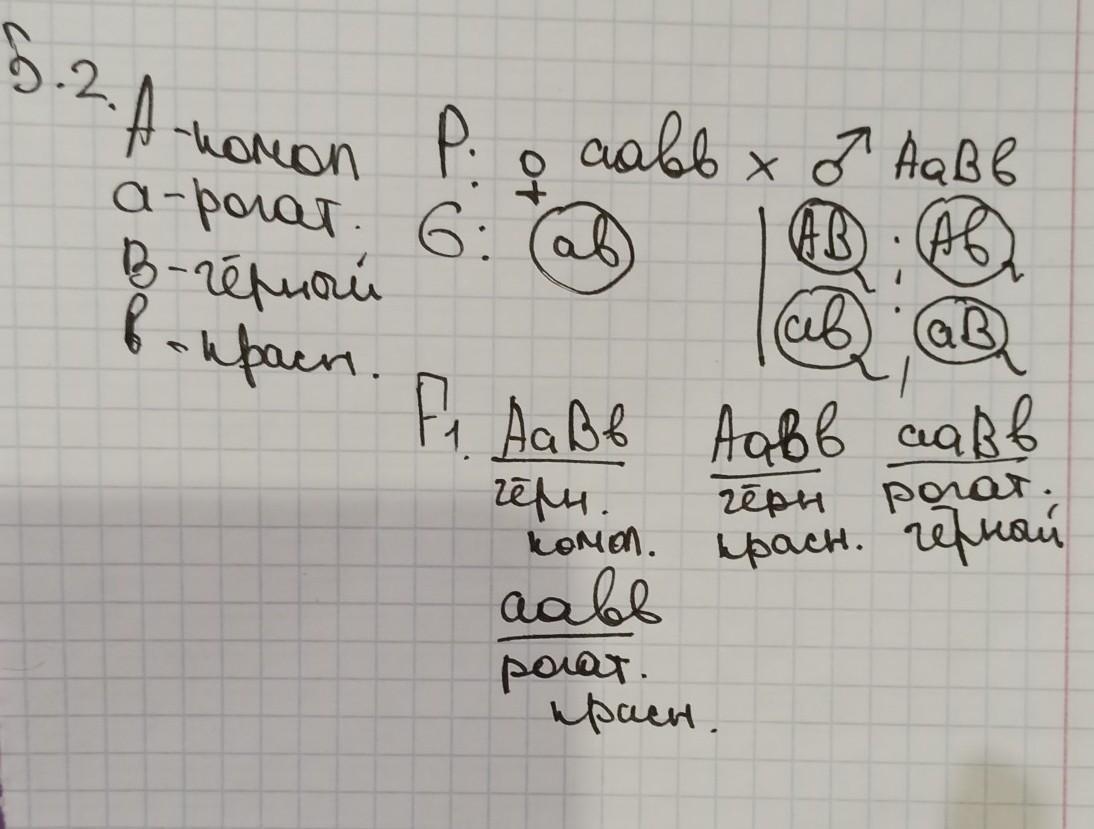 Б.2.
А - комол P: ♀ аавв × ♂ АаВв
а - рогат. G: ав | АВ ; Ав
В - чёрный ав ; аВ
в - красн.
F1. АаВв АаВв ааВв
чёрн. чёрн рогат.
комол. красн. чёрный
аавв
рогат.
красн.